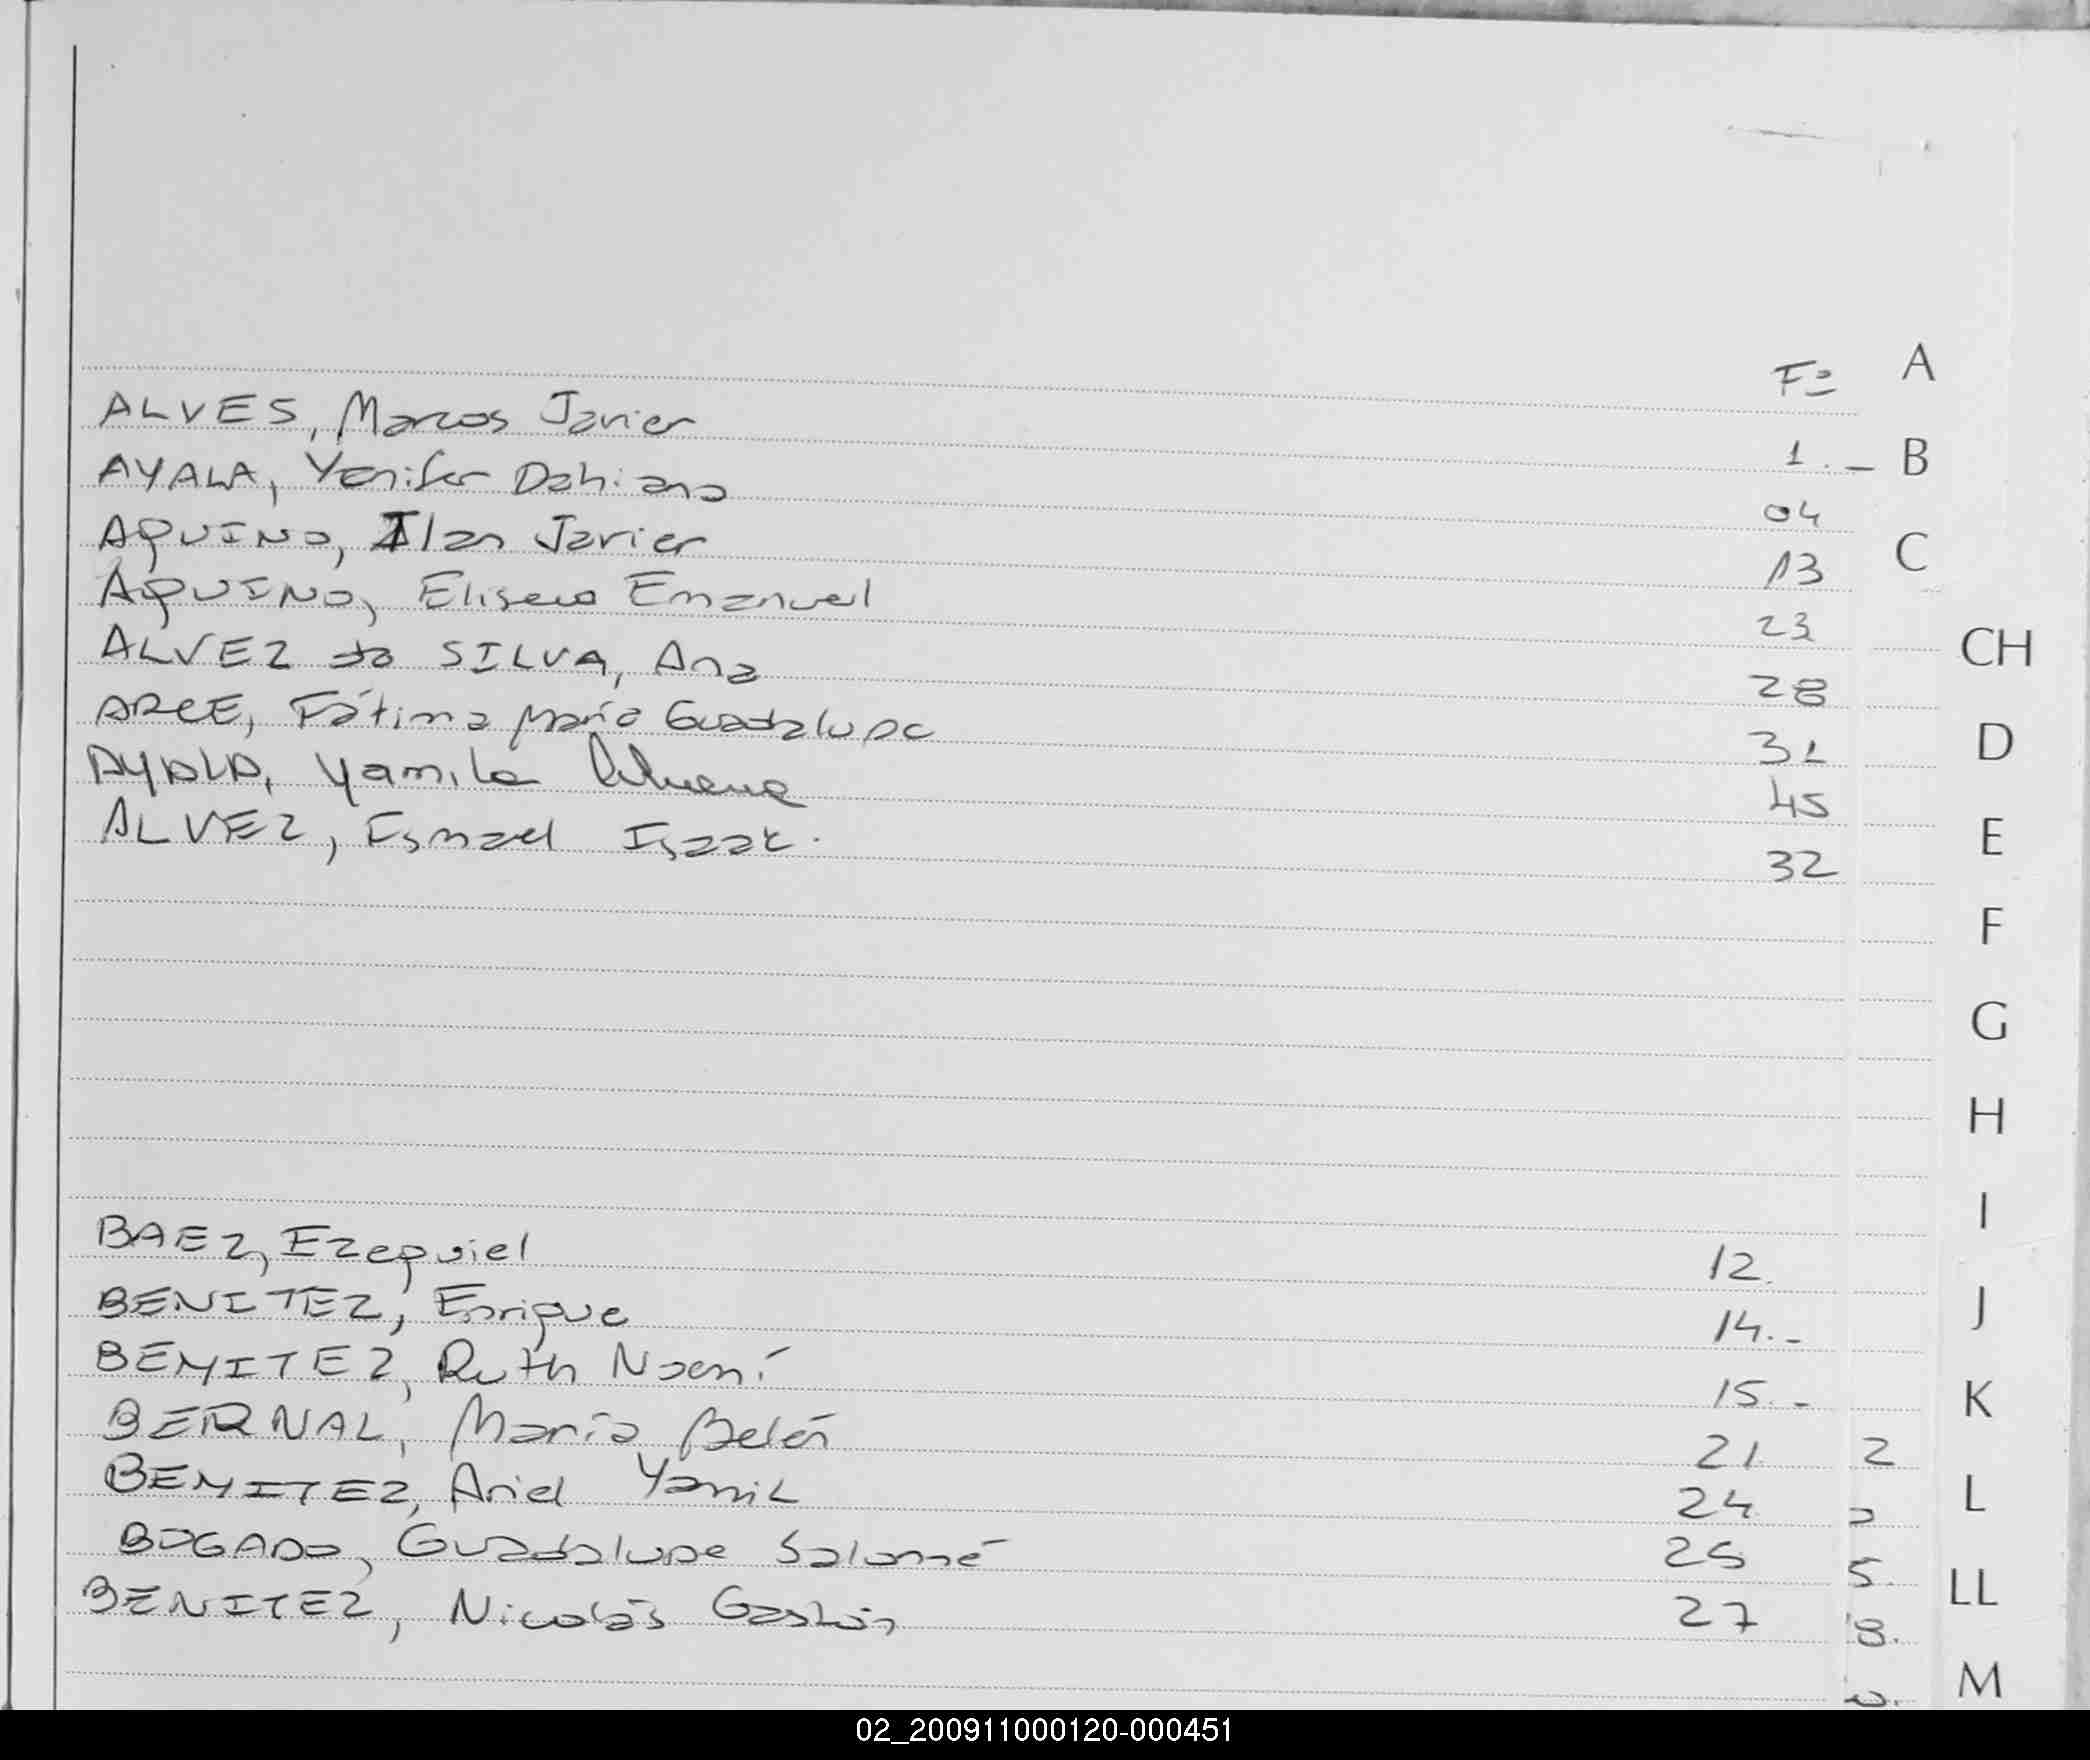 Fº A
ALVES, Marcos Javier 1.- B
AYALA, Yenifer Dahiana 04
AQUINO, Ilan Javier 13 C
AQUINO, Eliseo Emanuel 23
ALVEZ da SILVA, Ana 28 CH
ARCE, Fátima María Guadalupe 31 D
AYALA, Yamila 45
ALVEZ, Ismael Isaac. 32 E
F
G
H
I
BAEZ, Ezequiel 12.
BENITEZ, Enrique 14.- J
BENITEZ, Ruth Noemí 15.- K
BERNAL, María Belén 21 2
BENITEZ, Ariel Yamil 24 L
BOGADO, Guadalupe Salomé 25 5.
BENITEZ, Nicolás Gastón 27 8. LL
M
02_200911000120-000451